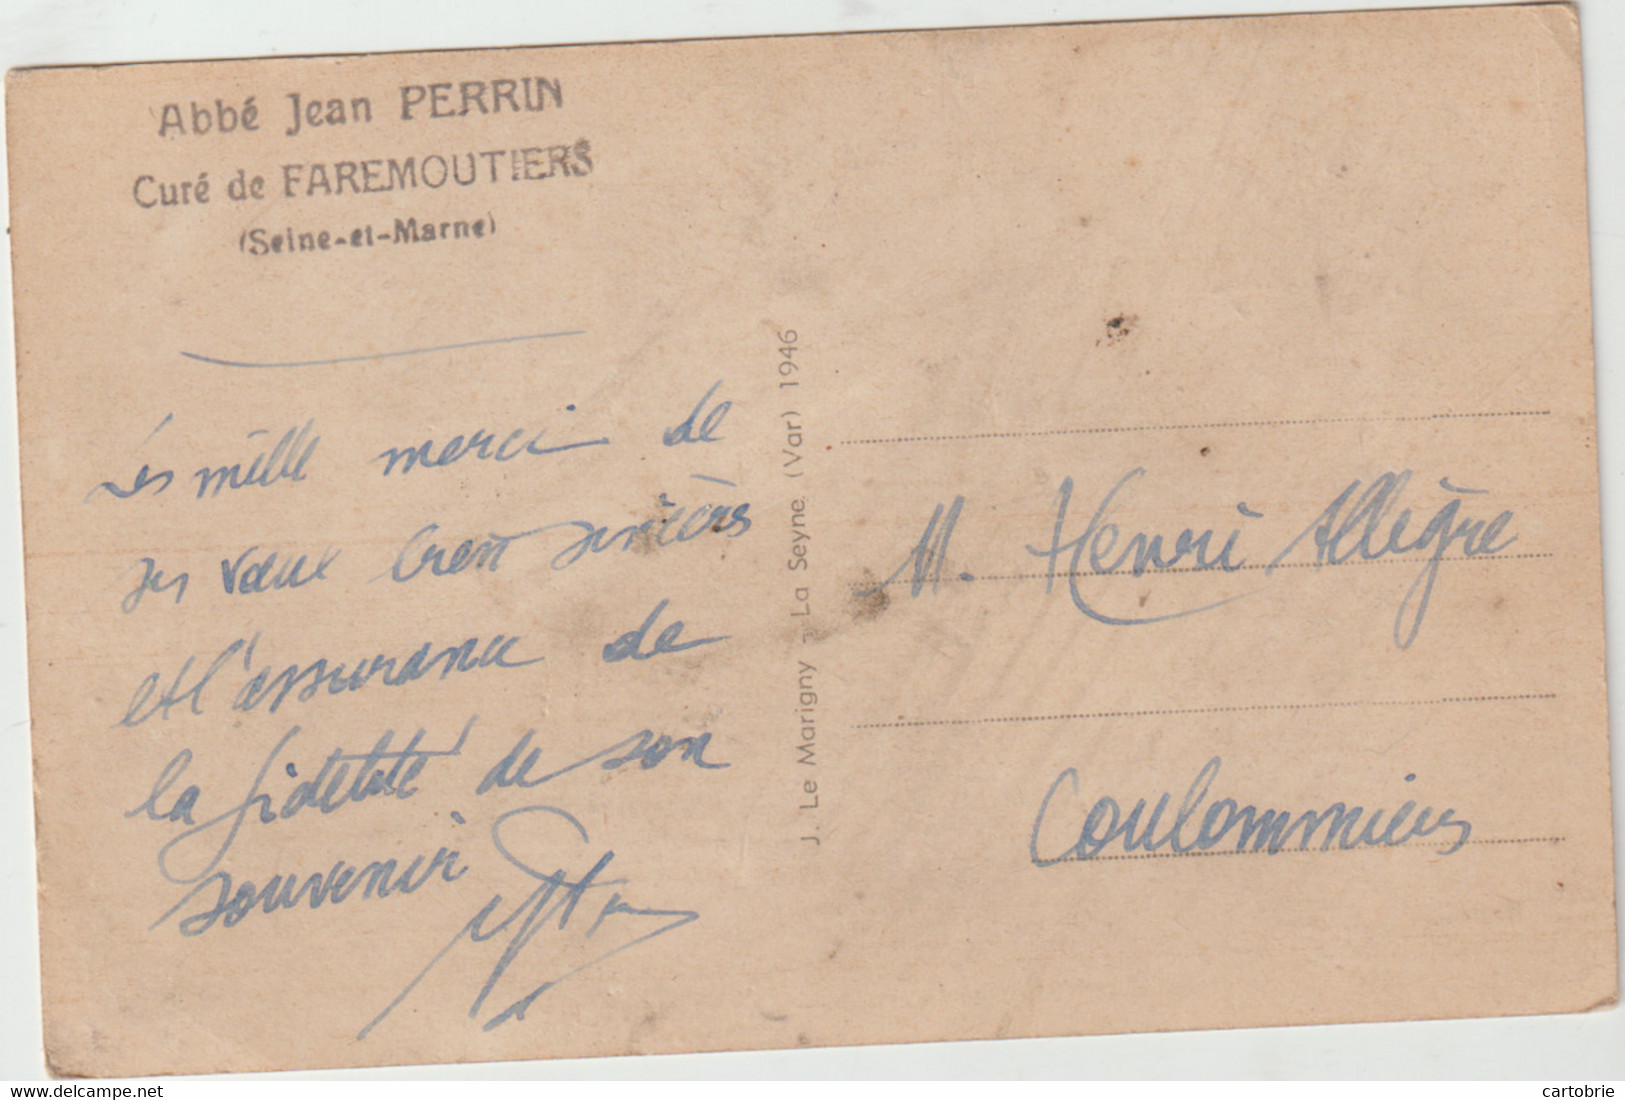 Abbé Jean PERRIN
Curé de FAREMOUTIERS
(Seine-et-Marne)
mille merci de
ses vœux bien sincères
et l'assurance de
la fidélité de son
souvenir
J. Le Marigny - La Seyne (Var) 1946
M. Henri Allègre
Coulommiers
www.delcampe.net
cartobrie